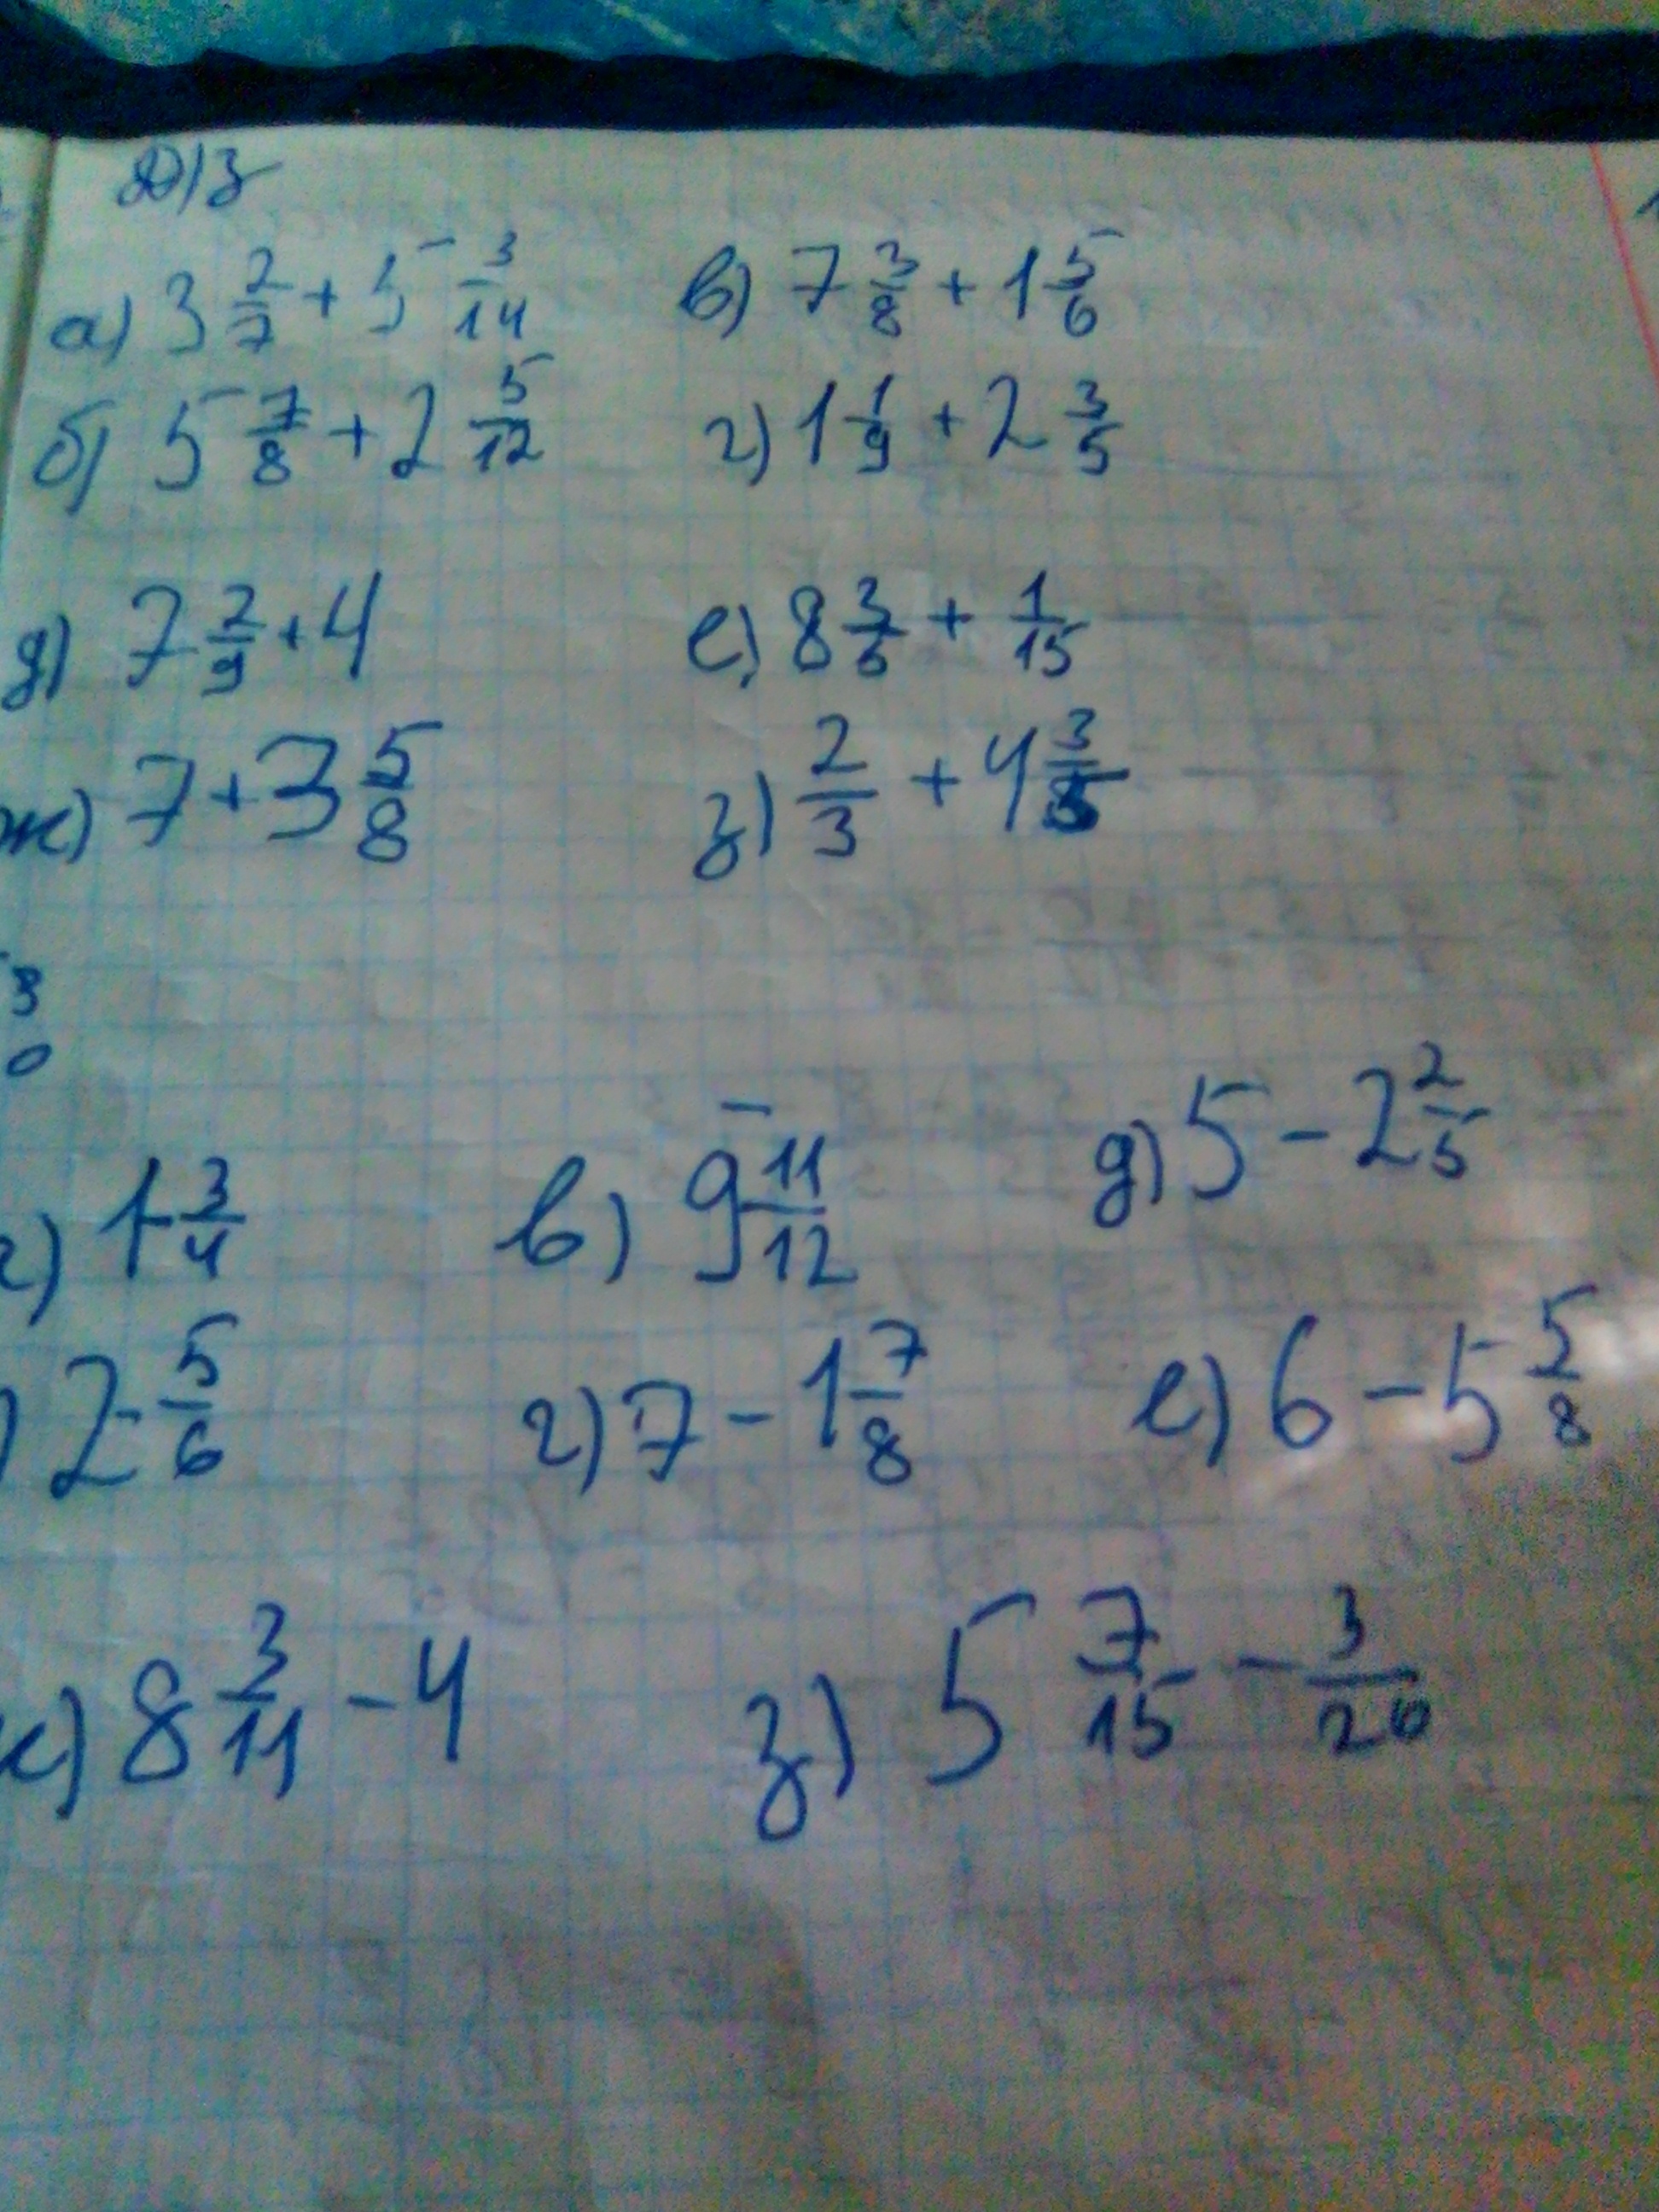 Д/з
а) 3 2/7 + 5 3/14 в) 7 3/8 + 1 5/6
б) 5 7/8 + 2 5/12 г) 1 1/9 + 2 3/5
д) 7 2/9 + 4 е) 8 3/5 + 1/15
ж) 7 + 3 5/8 з) 2/3 + 4 3/5
3
0
) 1 - 3/4 в) 9 - 11/12 д) 5 - 2 2/5
) 2 - 5/6 г) 7 - 1 7/8 е) 6 - 5 5/8
) 8 3/11 - 4 з) 5 7/15 - 3/20